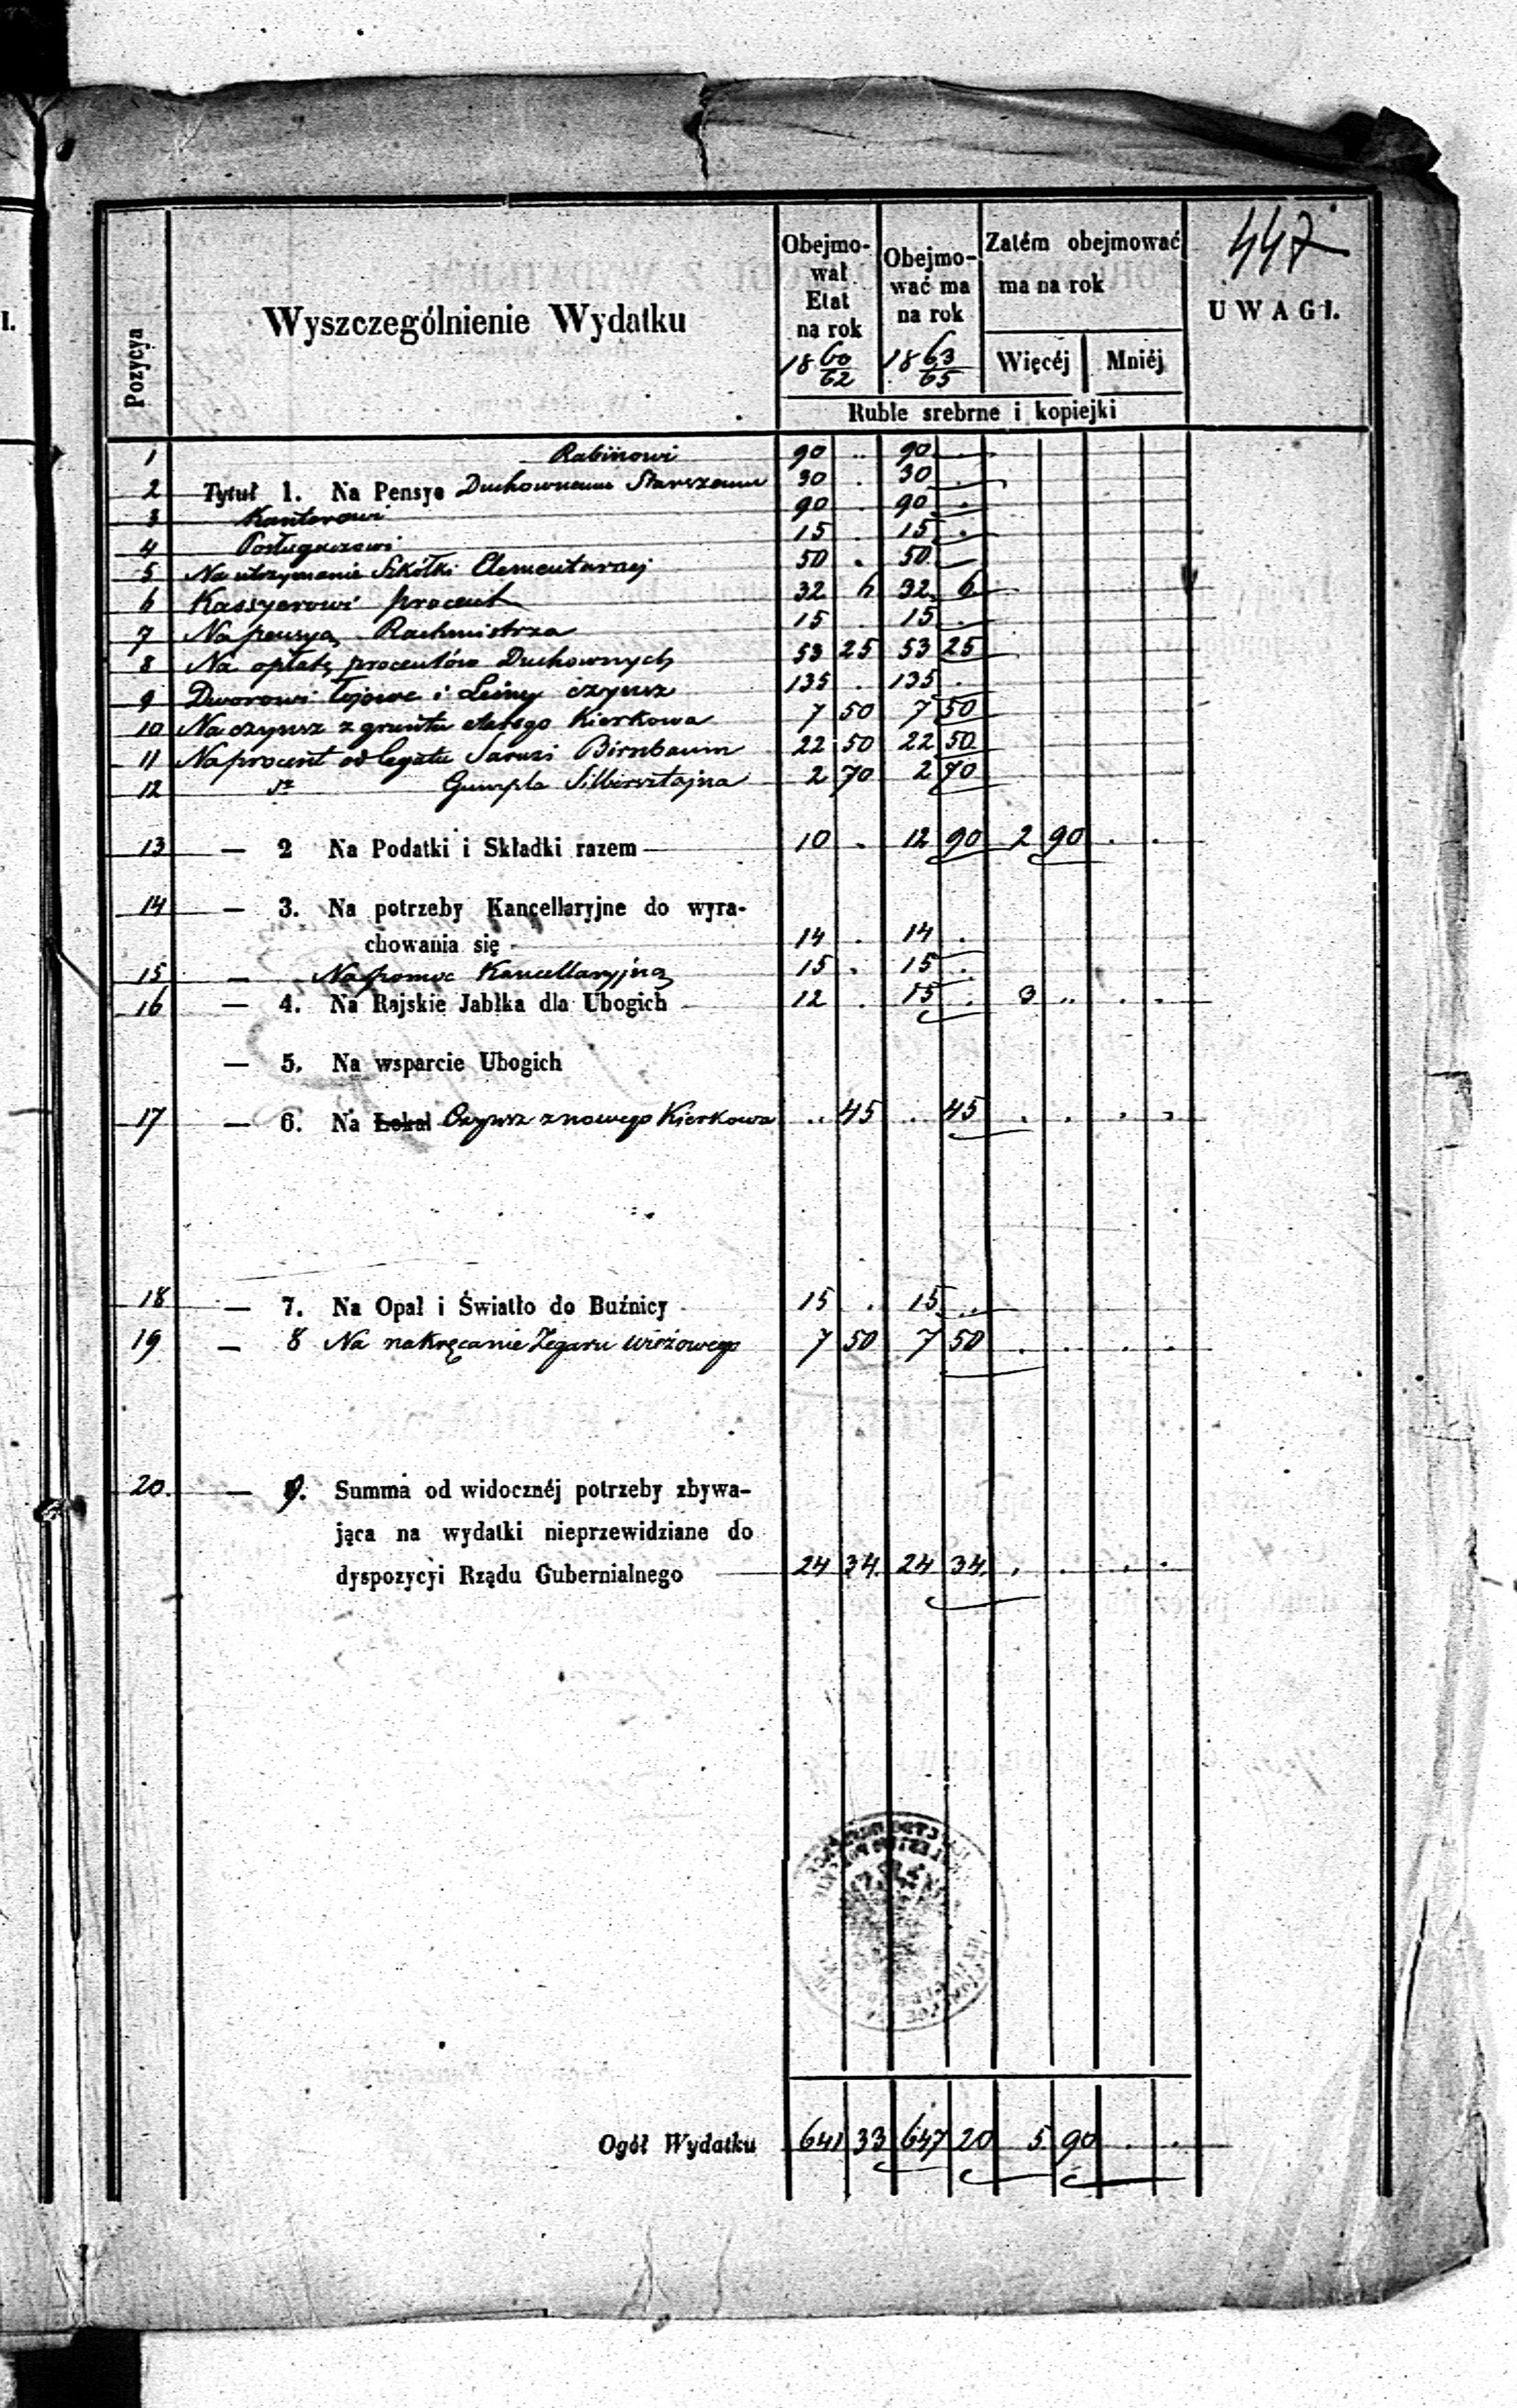 447
Pozycya
Wyszczególnienie Wydatku
Obejmo-
wał
Etat
na rok
18 60/62
Obejmo-
wać ma
na rok
18 63/65
Zatém obejmować
ma na rok
Więcéj Mniéj
Ruble srebrne i kopiejki
UWAGI.
1 Rabinowi 90 .. 90 .
2 Tytuł 1. Na Pensye Duchownemu Starszemu 30 . 30 .
3 Kantorowi 90 . 90 .
4 Posługaczowi 15 . 15 .
5 Na utrzymanie Szkółki Elementarnej 50 . 50
6 Kassyerowi procent 32 6 32 6
7 Na pensyą Rachmistrza 15 . 15 .
8 Na opłatę procentów Duchownych 53 25 53 25
9 Dworowi i czynsz 135 . 135 .
10 Na czynsz z gruntu starego Kierkowa 7 50 7 50
11 Na procent od legatu Birnbaum 22 50 22 50
12 Gumpla Silbersztajna 2 70 2 70
13 — 2 Na Podatki i Składki razem 10 . 12 90 2 90 . .
14 — 3. Na potrzeby Kancellaryjne do wyra-
chowania się 14 . 14 .
15 — Na pomoc Kancellaryjną 15 . 15 .
16 — 4. Na Rajskie Jabłka dla Ubogich 12 . 15 . 3 .. . .
— 5. Na wsparcie Ubogich
17 — 6. Na Lokal Czynsz z nowego Kierkowa .. 45 .. 45 . . . .
18 — 7. Na Opał i Światło do Buźnicy 15 . 15 ..
19 — 8 Na nakręcanie Zegaru wieżowego 7 50 7 50 . . . .
20. — 9. Summa od widocznéj potrzeby zbywa-
jąca na wydatki nieprzewidziane do
dyspozycyi Rządu Gubernialnego 24 34 24 34 . . . .
Ogół Wydatku 641 33 647 20 5 90 . .